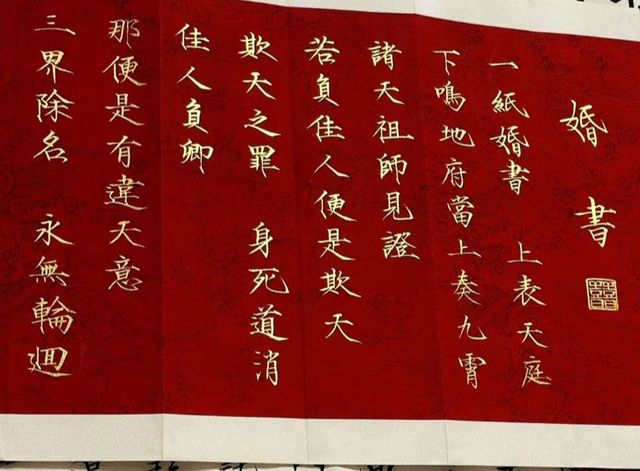 婚書
一紙婚書 上表天庭
下鳴地府當上奏九霄
諸天祖師見證
若負佳人便是欺天
欺天之罪 身死道消
佳人負卿
那便是有違天意
三界除名 永無輪迴